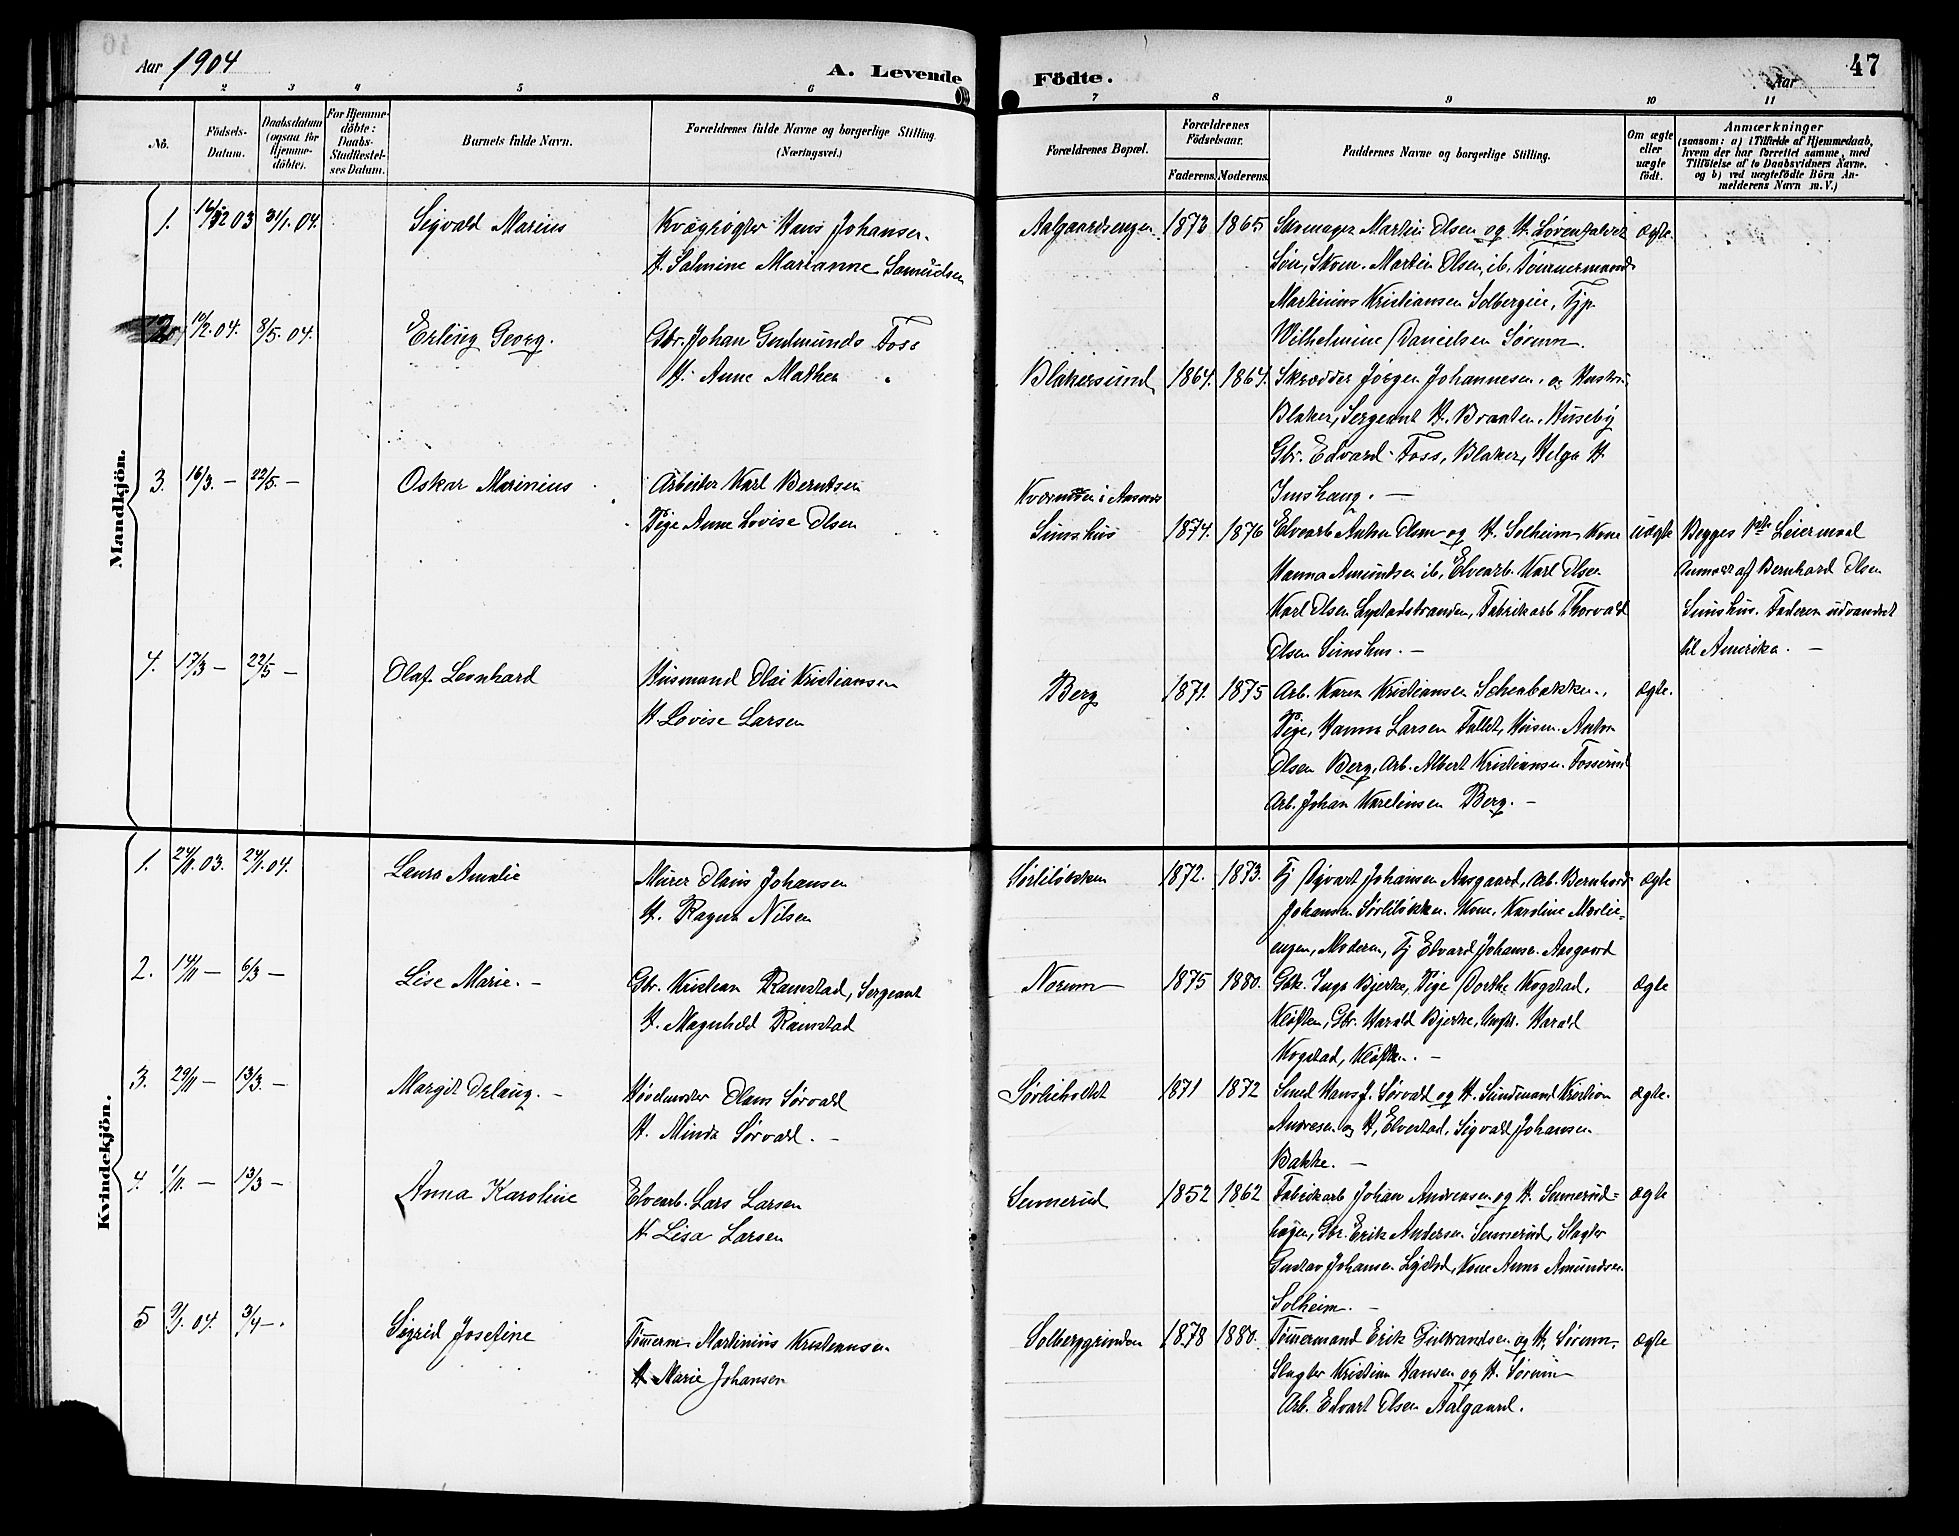 Aar 1904
A. Levende
Födte.
47
Aar
1 2 3 4 5 6 7 8 9 10 11
No.
Födsels-
Datum.
Daabsdatum
(ogsaa for
Hjemme-
döbte).
For Hjemme-
döbte:
Daabs-
Stadfæstel-
ses Datum.
Barnets fulde Navn.
Forældrenes fulde Navne og borgerlige Stilling.
(Næringsvei.)
Forældrenes Bopæl.
Forældrenes
Födselsaar.
Faderens. Moderens.
Faddernes Navne og borgerlige Stilling.
Om ægte
eller
uægte
födt.
Anmærkninger
(saasom: a) i Tilfælde af Hjemmedaab,
hvem der har forrettet samme, med
Tilföielse af to Daabsvidners Navne,
og b) ved uægtefödte Börn An-
melderens Navn m. V.)
Mandkjön.
1. 03 31/1. 04. Sigvald Marius
Kvægrøgter Hans Johansen.
H. Salmine Marianne Samuelsen
Aalgaardsengen 1873 1865 Skomager Martin Olsen og H.
ægte.
Søn, Skom. Martin Olsen, ib. Tømmermand
Martinius Kristiansen Solbergeie, Tjp.
Wilhelmine Danielsen Sørum.
2. 04. 8/5. 04. Erling Georg.
Gbr. Johan Gudmunds Foss
H. Anne Mathea
Blakersund 1864. 1864. Skrædder Jørgen Johannesen, og Hustru
Blaker, Sergeant H. Braaten, Huseby
Gbr. Edvard Foss, Blaker, Helga H.
Imshaug. —
3. 16/3. — 22/5. — Oskar Marinius
Arbeider Karl Berntsen
Pige Anne Lovise Olsen
Simshus 1874. 1876 Elvearb. Anton Olsen og H. Solheim, Kone
Hanna Amundsen ib, Elvearb. Karl Olsen
Karl Olsen Lystadstranden, Fabrikarb. Thorvald
Olsen Simshus. —
uægte
Begges Leiermaal
Anmeldt af Bernhard Olsen
Simshus. Faderen udvandret
til Amerika. —
4. 17/3 — 22/5 — Olaf Leonhard
Husmand Olai Kristiansen
H. Lovise Larsen
Berg 1871. 1875 Arb. Karen Kristiansen
ægte.
Pige, Hanna Larsen Fallet, Husm. Anton
Olsen Berg, Arb. Albert Kristiansen Fosserud
Arb. Johan Karelinsen Berg. —
Kvindekjön.
1. 24/11. 03. 24/1. 04. Laura Amalie
Murer Olaus Johansen
H. Ragna Nilsen
Sørliløkken 1872. 1873. Tj Sigvart Johansen Aasgaard, Arb. Bernhard
ægte
Johansen Sørliløkken. Kone, Karoline Mærlie-
engen, Moderen, Tj Edvard Johansen Aasgaard
2. 14/11 — 6/3 — Lise Marie. —
Gbr. Kristian Ramstad, Sergeant
H. Magnhild Ramstad
Norum 1875 1880. Gbk. Inga Bjerke, Pige Dorthe Kogstad,
ægte
Kløften, Gbr. Harald Bjerke, Harald
Kogstad, Kløften. —
3. 29/11 — 13/3 — Margit Orlaug. —
Høvelmester Olaus Sørvald
H. Minda Sørvald. —
Sørlieholtet 1871 1872 Smed Hans J. Sørvald og H. Sundmand Kristian
ægte.
Andresen og H, Elvestad, Sigvald Johansen
Bakke. —
4. 1/11. — 13/3 — Anna Karoline
Elvearb. Lars Larsen
H Lisa Larsen
Semerud 1852 1862 Fabrikarb Johan Andreasen og H. Semerud-
ægte
haugen, Gbr. Erik Andersen Semerud, Slagter
Gustav Johansen Lystad, Kone Anna Amundsen
Solheim. —
5 9/1. 04. 3/4 —. Sigrid Josefine
Tømerm. Martinius Kristiansen
H Marie Johansen
Solberggrinden 1878 1880. Tømermand Erik Gulbrandsen og H. Sørum,
ægte
Slagter Kristian Hansen og H. Sørum
Arb. Edvart Olsen Aalgaard.